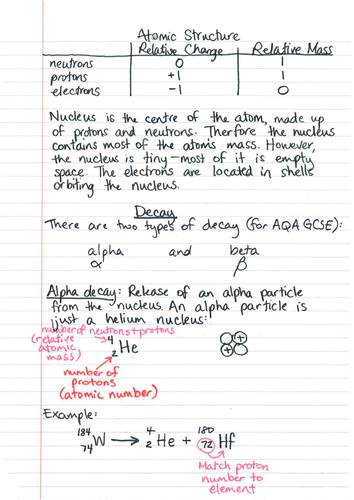 Atomic Structure
Relative Change Relative Mass
neutrons 0 1
protons +1 1
electrons -1 0
Nucleus is the centre of the atom, made up
of protons and neutrons. Therfore the nucleus
contains most of the atoms mass. However,
the nucleus is tiny - most of it is empty
space. The electrons are located in shells
orbiting the nucleus.
Decay
There are two types of decay (for AQA GCSE):
alpha and beta
α β
Alpha decay: Release of an alpha particle
from the nucleus. An alpha particle is
just a helium nucleus:
number of neutrons+protons
(relative atomic mass) → ⁴₂He
+ +
number of
protons
(atomic number)
Example:
¹⁸⁴₇₄W → ⁴₂He + ¹⁸⁰₇₂Hf
Match proton
number to
element